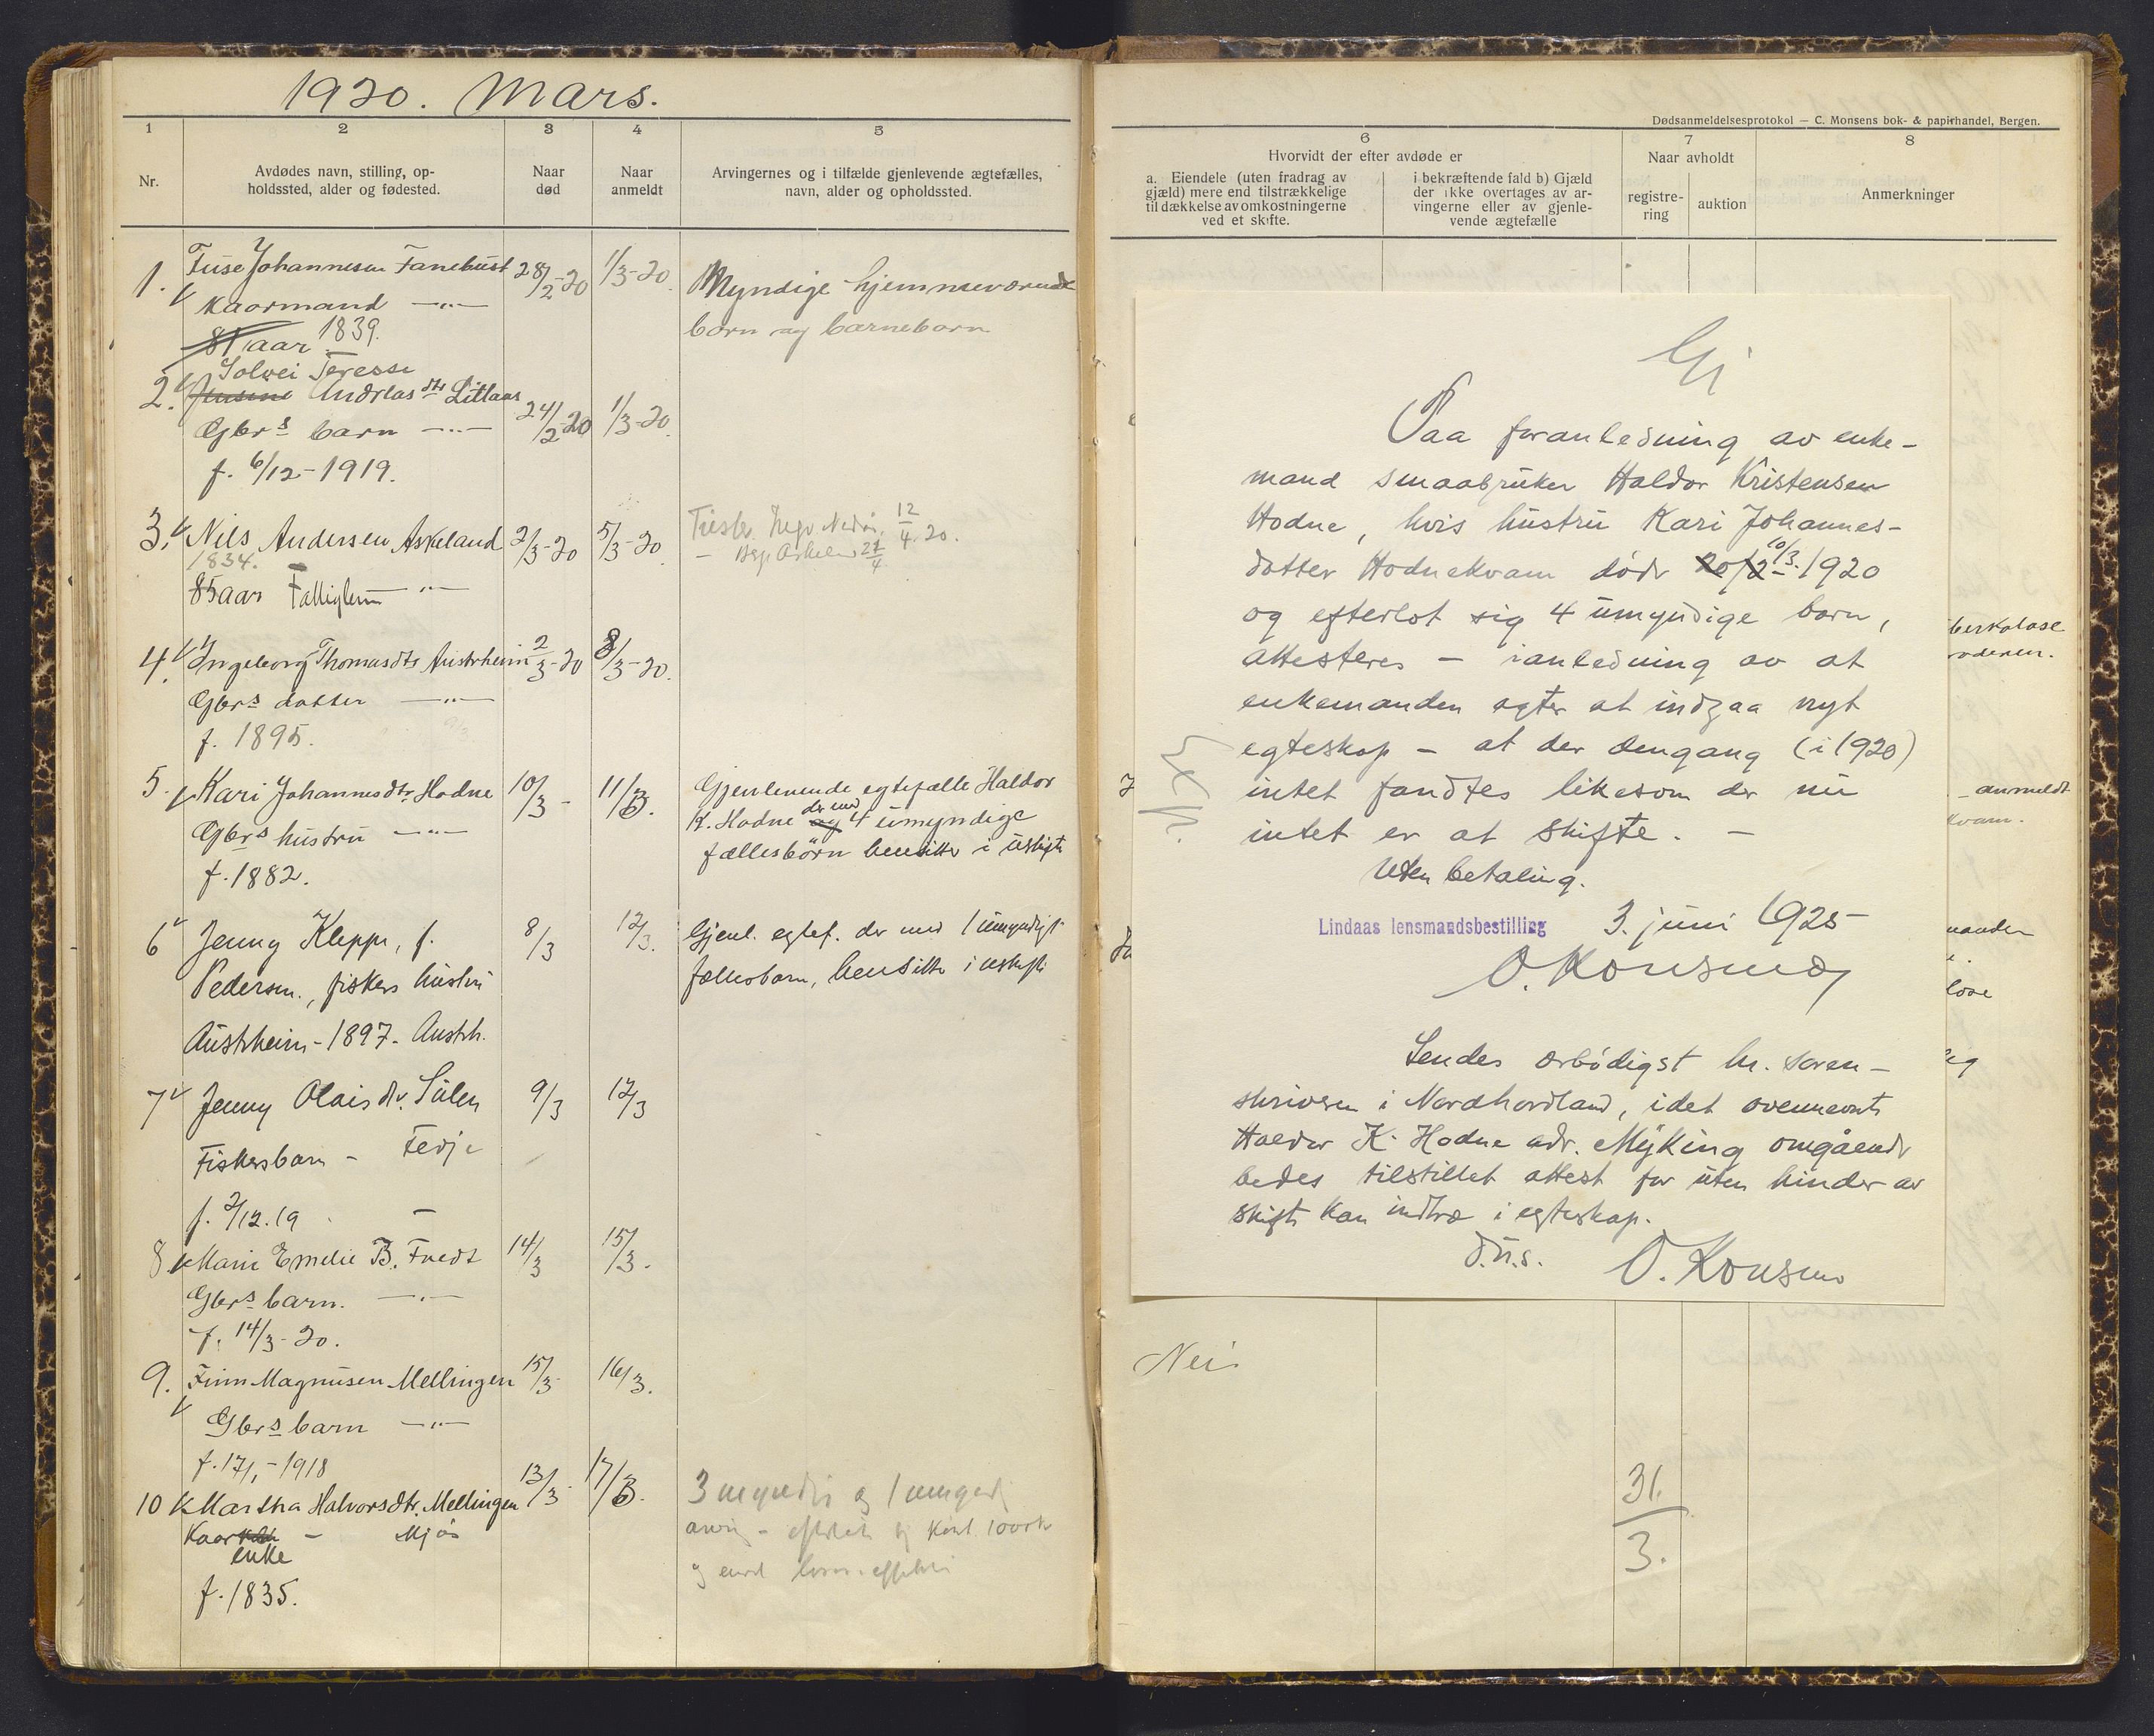 1920. Mars.
1
2
3
4
5
Nr.
Avdødes navn, stilling, op-
holdssted, alder og fødested.
Naar
død
Naar
anmeldt
Arvingernes og i tilfælde gjenlevende ægtefælles,
navn, alder og opholdssted.
1. Tuse Johannesen Fanebust 28/2-20 1/3-20.
Kaarmand —"— Myndige hjemmeværende
81 aar 1839. børn og barnebørn
Solvei Terese
2. Jensine Andreasdtr Litlaas 24/2-20 1/3-20.
Gbrs barn —"—
f. 6/12-1919.
3. Nils Andersen Askeland 2/3-20 5/3-20 12/4.20.
1834.
85 aar Fattiglem —"—
4. Ingeborg Thomasdtr Austrheim 2/3-20 8/3-20.
Gbrs datter —"—
f. 1895.
5. Kari Johannesdtr. Hodne 10/3- 11/3. Gjenlevende egtefælle Haldor
K. Hodne og der med 4 umyndige
Gbrs hustru —"— fællesbörn hensitter i uskifte
f. 1882.
6 Jenny Kleppe, f. 8/3 12/3. Gjenl. egtef. der med 1 umyndigt
Pedersen., fiskers hustru fællesbarn, hensitter i uskifte
Austrheim-1897. Austrh.
7 Jenny Olaisdtr. Sulen 9/3 12/3
Fiskersbarn - Fedje
f. 2/12.19
8 Marie Emelie B. Fuedt 14/3 15/3.
Gbrs barn. —"—
f. 14/3-20.
9. Finn Magnusen Mellingen 15/3- 16/3.
Gbrs barn —"—
f. 17/1-1918
10 Martha Halvorsdtr. Mellingen 13/3- 17/3. 3 myndige og 1 umyndig
Kaar - Mjös
enke
f. 1835.
Dødsanmeldelsesprotokol — C. Monsens bok- & papirhandel, Bergen.
6
7
8
Hvorvidt der efter avdøde er
a. Eiendele (uten fradrag av
gjæld) mere end tilstrækkelige
til dækkelse av omkostningerne
ved et skifte.
i bekræftende fald b) Gjæld
der ikke overtages av ar-
vingerne eller av gjenle-
vende ægtefælle
Naar avholdt
registre-
ring
auktion
Anmerkninger
Gj
Paa foranledning av enke-
mand smaabruker Haldor Kristensen
Hodne, hvis hustru Kari Johannes-
datter Hodnekvam döde 20/2 10/3. 1920
og efterlot sig 4 umyndige barn,
attesteres - i anledning av at
enkemanden agter at indgaa nyt
egteskap - at der dengang (i 1920)
intet fandtes likesom der nu
intet er at skifte. -
Uten betaling.
Exp.
Lindaas lensmandsbestilling 3. juni 1925
O. Konsmo
Sendes ærbödigst hr. soren-
skriveren i Nordhordland, idet ovennevnte
Haldor K. Hodne adr. Myking omgående
bedes tilstillet attest for uten hinder av
skifte kan indtræ i egteskap.
D.u.s. O. Konsmo
berkulose
anmeldt
kvam.
Nei
31.
3.